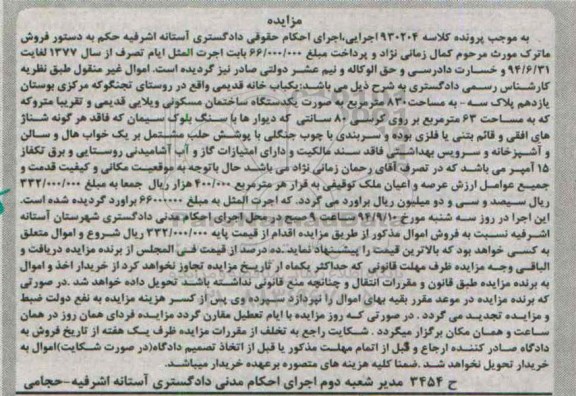 مزایده
به موجب پرونده کلاسه ۹۳۰۲۰۴ اجرایی،اجرای احکام حقوقی دادگستری آستانه اشرفیه حکم به دستور فروش
ماترک مورث مرحوم کمال زمانی نژاد و پرداخت مبلغ ۶۶/۰۰۰/۰۰۰ بابت اجرت المثل ایام تصرف از سال ۱۳۷۷ لغایت
۹۴/۶/۳۱ و خسارت دادرسی و حق الوکاله و نیم عشر دولتی صادر نیز گردیده است. اموال غیر منقول طبق نظریه
کارشناس رسمی دادگستری به شرح ذیل می باشد:یکباب خانه قدیمی واقع در روستای تجنگوکه مرکزی بوستان
یازدهم پلاک سه - به مساحت ۸۳۰ مترمربع به صورت یکدستگاه ساختمان مسکونی ویلایی قدیمی و تقریبا متروکه
که به مساحت ۶۳ مترمربع بر روی کرسی ۸۰ سانتی که دیوار ها با سنگ بلوک سیمان که فاقد هر گونه شناژ
های افقی و قائم بتنی یا فلزی بوده و سربندی با چوب جنگلی با پوشش حلب مشتمل بر یک خواب هال و سالن
و آشپزخانه و سرویس بهداشتی فاقد سند مالکیت و دارای امتیازات گاز و آب آشامیدنی روستایی و برق تکفاز
۱۵ آمپر می باشد که در تصرف آقای رحمان زمانی نژاد می باشد حال باتوجه به موقعیت مکانی و کیفیت قدمت و
جمیع عوامل ارزش عرصه و اعیان ملک توقیفی به قرار هر مترمربع ۴۰۰/۰۰۰ هزار ریال جمعا به مبلغ ۳۳۲/۰۰۰/۰۰۰
ریال سیصد و سی و دو میلیون ریال براورد می گردد. که اجرت المثل به مبلغ ۶۶۰۰۰۰۰۰ برآورد گردیده شده است.
این اجرا در روز سه شنبه مورخ ۹۴/۹/۱۰ ساعت ۹ صبح در محل اجرای احکام مدنی دادگستری شهرستان آستانه
اشرفیه نسبت به فروش اموال مذکور از طریق مزایده اقدام از قیمت پایه ۳۳۲/۰۰۰/۰۰۰ ریال شروع و اموال متعلق
به کسی خواهد بود که بالاترین قیمت را پیشنهاد نماید .ده درصد از قیمت فی المجلس از برنده مزایده دریافت و
الباقی وجه مزایده ظرف مهلت قانونی که حداکثر یکماه از تاریخ مزایده تجاوز نخواهد کرد از خریدار اخذ و اموال
به برنده مزایده طبق قانون و مقررات انتقال و چنانچه منع قانونی نداشته باشد تحویل داده خواهد شد .در صورتی
که برنده مزایده در موعد مقرر بقیه بهای اموال را نپردازد سپرده وی پس از کسر هزینه مزایده به نفع دولت ضبط
و مزایده تجدید می گردد . در صورتی که روز مزایده با ایام تعطیل مقارن گردد مزایده فردای همان روز در همان
ساعت و همان مکان برگزار میگردد . شکایت راجع به تخلف از مقررات مزایده ظرف یک هفته از تاریخ فروش به
دادگاه صادر کننده ارجاع و قبل از اتمام مهلت مذکور یا قبل از اتخاذ تصمیم دادگاه(در صورت شکایت)اموال به
خریدار تحویل نخواهد شد. ضمنا کلیه هزینه های متصوره برعهده خریدار میباشد.
ح ۳۴۵۴ مدیر شعبه دوم اجرای احکام مدنی دادگستری آستانه اشرفیه-حجامی